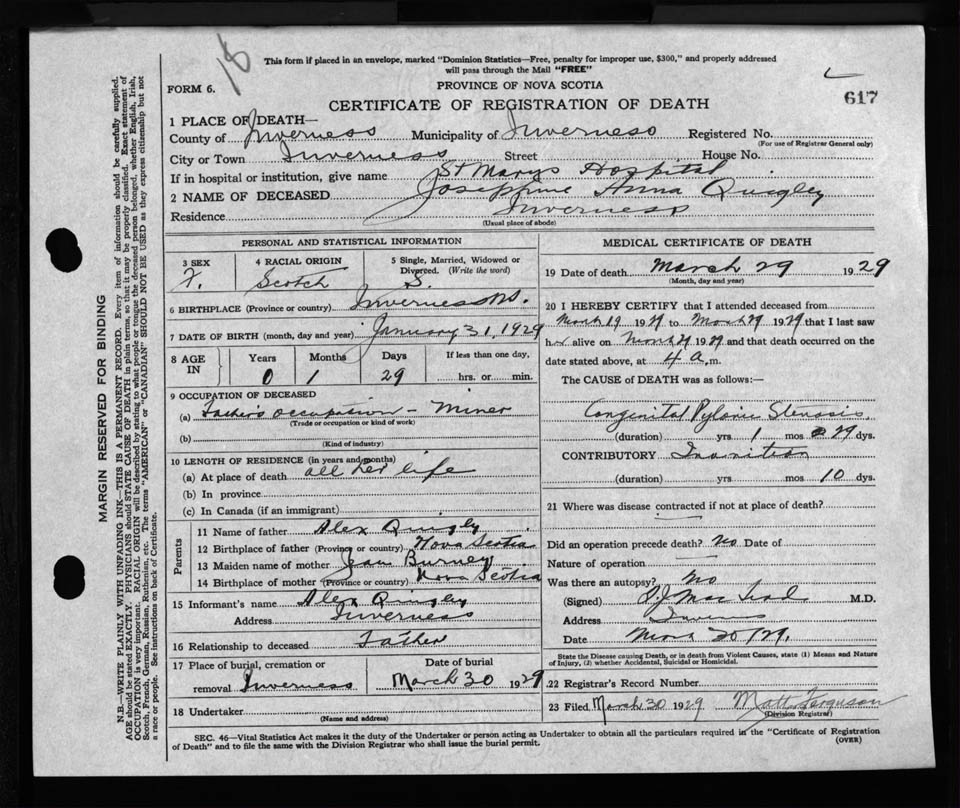 18
This form if placed in an envelope, marked "Dominion Statistics—Free, penalty for improper use, $300," and properly addressed
will pass through the Mail "FREE"
FORM 6.
PROVINCE OF NOVA SCOTIA
617
CERTIFICATE OF REGISTRATION OF DEATH
1 PLACE OF DEATH—
County of Inverness Municipality of Inverness Registered No.
(For use of Registrar General only)
City or Town Inverness Street House No.
If in hospital or institution, give name St Marys Hospital
2 NAME OF DECEASED Josephine Anna Quigley
Residence Inverness
(Usual place of abode)
PERSONAL AND STATISTICAL INFORMATION
3 SEX 4 RACIAL ORIGIN 5 Single, Married, Widowed or
Divorced. (Write the word)
F. Scotch S.
6 BIRTHPLACE (Province or country) Inverness N.S.
7 DATE OF BIRTH (month, day and year) January 31, 1929
8 AGE IN Years Months Days If less than one day,
0 1 29 hrs. or min.
9 OCCUPATION OF DECEASED
(a) Father's occupation - Miner
(Trade or occupation or kind of work)
(b)
(Kind of industry)
10 LENGTH OF RESIDENCE (in years and months)
(a) At place of death all her life
(b) In province
(c) In Canada (if an immigrant)
Parents
11 Name of father Alex Quigley
12 Birthplace of father (Province or country) Nova Scotia
13 Maiden name of mother Burney
14 Birthplace of mother (Province or country) Nova Scotia
15 Informant's name Alex Quigley
Address Inverness
16 Relationship to deceased Father
17 Place of burial, cremation or Date of burial
removal Inverness March 30 1929
18 Undertaker
(Name and address)
MEDICAL CERTIFICATE OF DEATH
19 Date of death March 29 1929
(Month, day and year)
20 I HEREBY CERTIFY that I attended deceased from
March 19 1929 to March 29 1929 that I last saw
her alive on March 29 1929 and that death occurred on the
date stated above, at 4 a.m.
The CAUSE of DEATH was as follows:—
Congenital Pyloric Stenosis
(duration) yrs 1 mos 29 dys.
CONTRIBUTORY Inanition
(duration) yrs mos 10 dys.
21 Where was disease contracted if not at place of death?
Did an operation precede death? No Date of
Nature of operation
Was there an autopsy? No
(Signed) M.D.
Address Inverness
Date March 30/29.
State the Disease causing Death, or in death from Violent Causes, state (1) Means and Nature
of Injury, (2) whether Accidental, Suicidal or Homicidal.
22 Registrar's Record Number
23 Filed March 30 1929 Matt F. Ferguson
(Division Registrar)
SEC. 46—Vital Statistics Act makes it the duty of the Undertaker or person acting as Undertaker to obtain all the particulars required in the "Certificate of Registration
of Death" and to file the same with the Division Registrar who shall issue the burial permit.
(OVER)
MARGIN RESERVED FOR BINDING
N.B.—WRITE PLAINLY WITH UNFADING INK—THIS IS A PERMANENT RECORD. Every item of information should be carefully supplied.
AGE should be stated EXACTLY. PHYSICIANS should STATE CAUSE OF DEATH in plain terms, so that it may be properly classified. Exact statement of
OCCUPATION is very important. RACIAL ORIGIN will be described by stating to what people or tongue the deceased person belonged, whether English, Irish,
Scotch, French, German, Russian, Ruthenian, etc. The terms "AMERICAN" or "CANADIAN" SHOULD NOT BE USED as they express citizenship but not
a race or people. See instructions on back of Certificate.